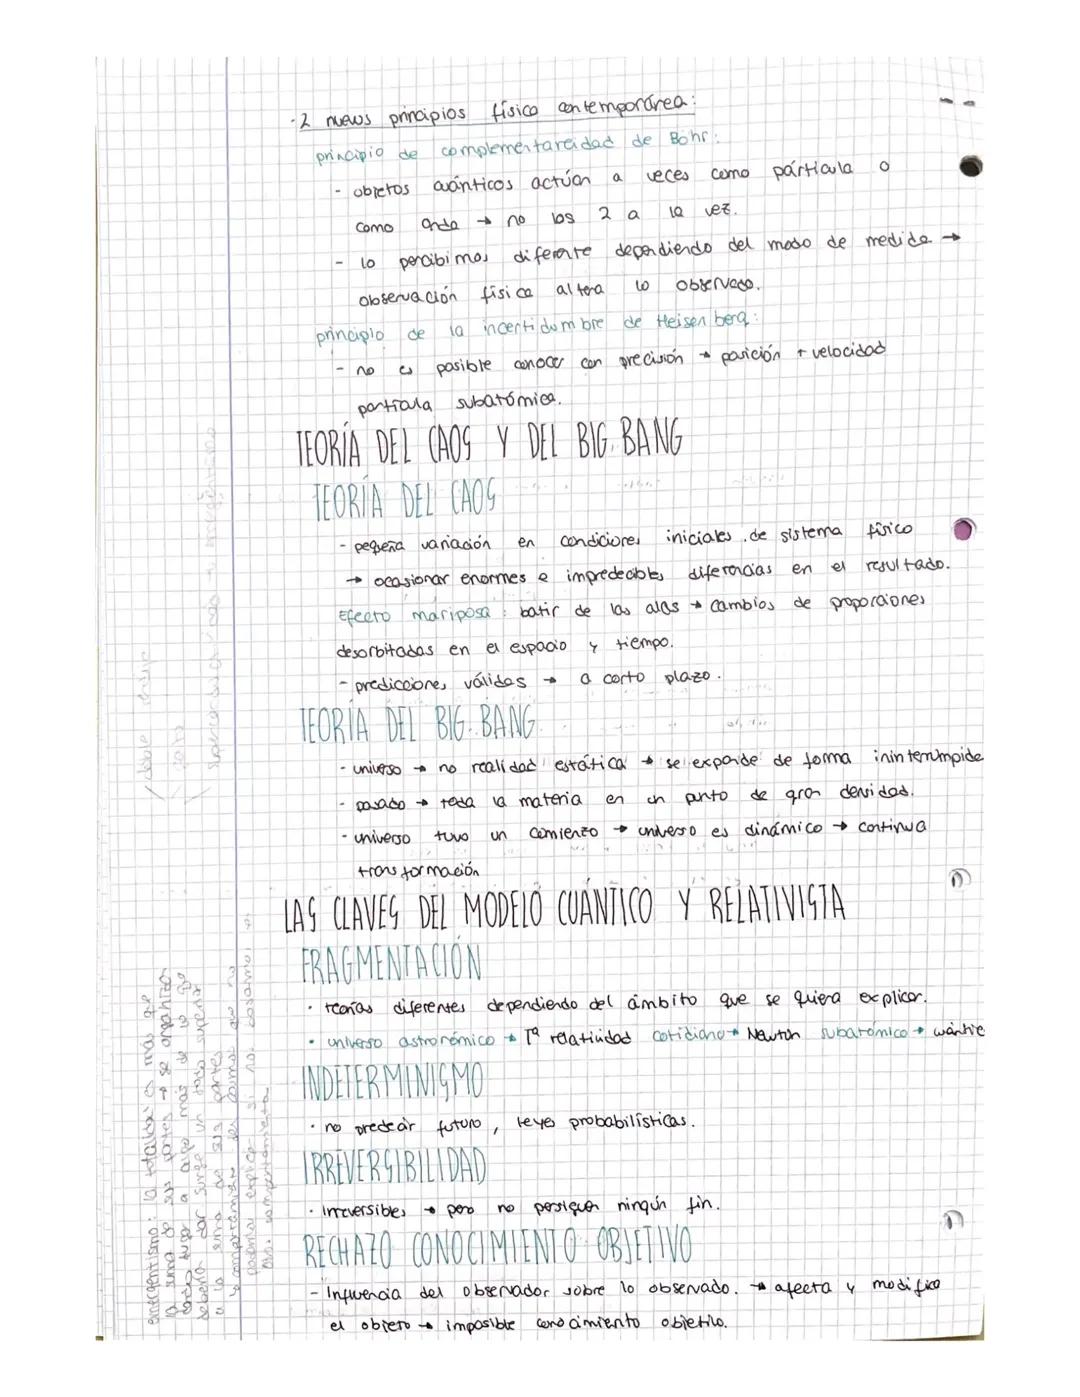 - 2 nuevos principios física contemporánea:
principio de complementareidad de Bohr:
- objetos cuánticos actúan a veces como párticula o
como onda → no los 2 a la vez.
- lo percibimos diferente dependiendo del modo de medida →
observación física altera lo observado.
principio de la incertidumbre de Heisenberg:
- no es posible conocer con precisión → posición + velocidad
partícula subatómica.
TEORÍA DEL CAOS Y DEL BIG. BANG
TEORÍA DEL CAOS
- pequeña variación en condiciones iniciales de sistema físico
→ ocasionar enormes e impredecibles diferencias en el resultado.
Efecto mariposa: batir de las alas → cambios de proporciones
desorbitadas en el espacio y tiempo.
- predicciones válidas → a corto plazo.
TEORÍA DEL BIG. BANG.
- universo → no realidad estática → se expande de forma ininterrumpida
- pasado → toda la materia en un punto de gran densidad.
- universo tuvo un comienzo → universo es dinámico → continua
transformación
LAS CLAVES DEL MODELO CUÁNTICO Y RELATIVISTA
FRAGMENTACIÓN
• teorías diferentes dependiendo del ámbito que se quiera explicar.
• universo astronómico → Tª relatividad cotidiano → Newton subatómico → cuántic
INDETERMINISMO
• no predecir futuro, leyes probabilísticas.
IRREVERSIBILIDAD
• Irreversibles → pero no persiguen ningún fin.
RECHAZO CONOCIMIENTO OBJETIVO
- Influencia del observador sobre lo observado. → afecta y modifica
el objeto → imposible conocimiento objetivo.
emergentismo: la totalidad es más que
la suma de sus partes → se organizan
para lugar a algo más de lo que
debería dar surge un todo superior
a la suma de sus partes
comportamiento que no
podamos explicar si nos basamos en
comportamiento